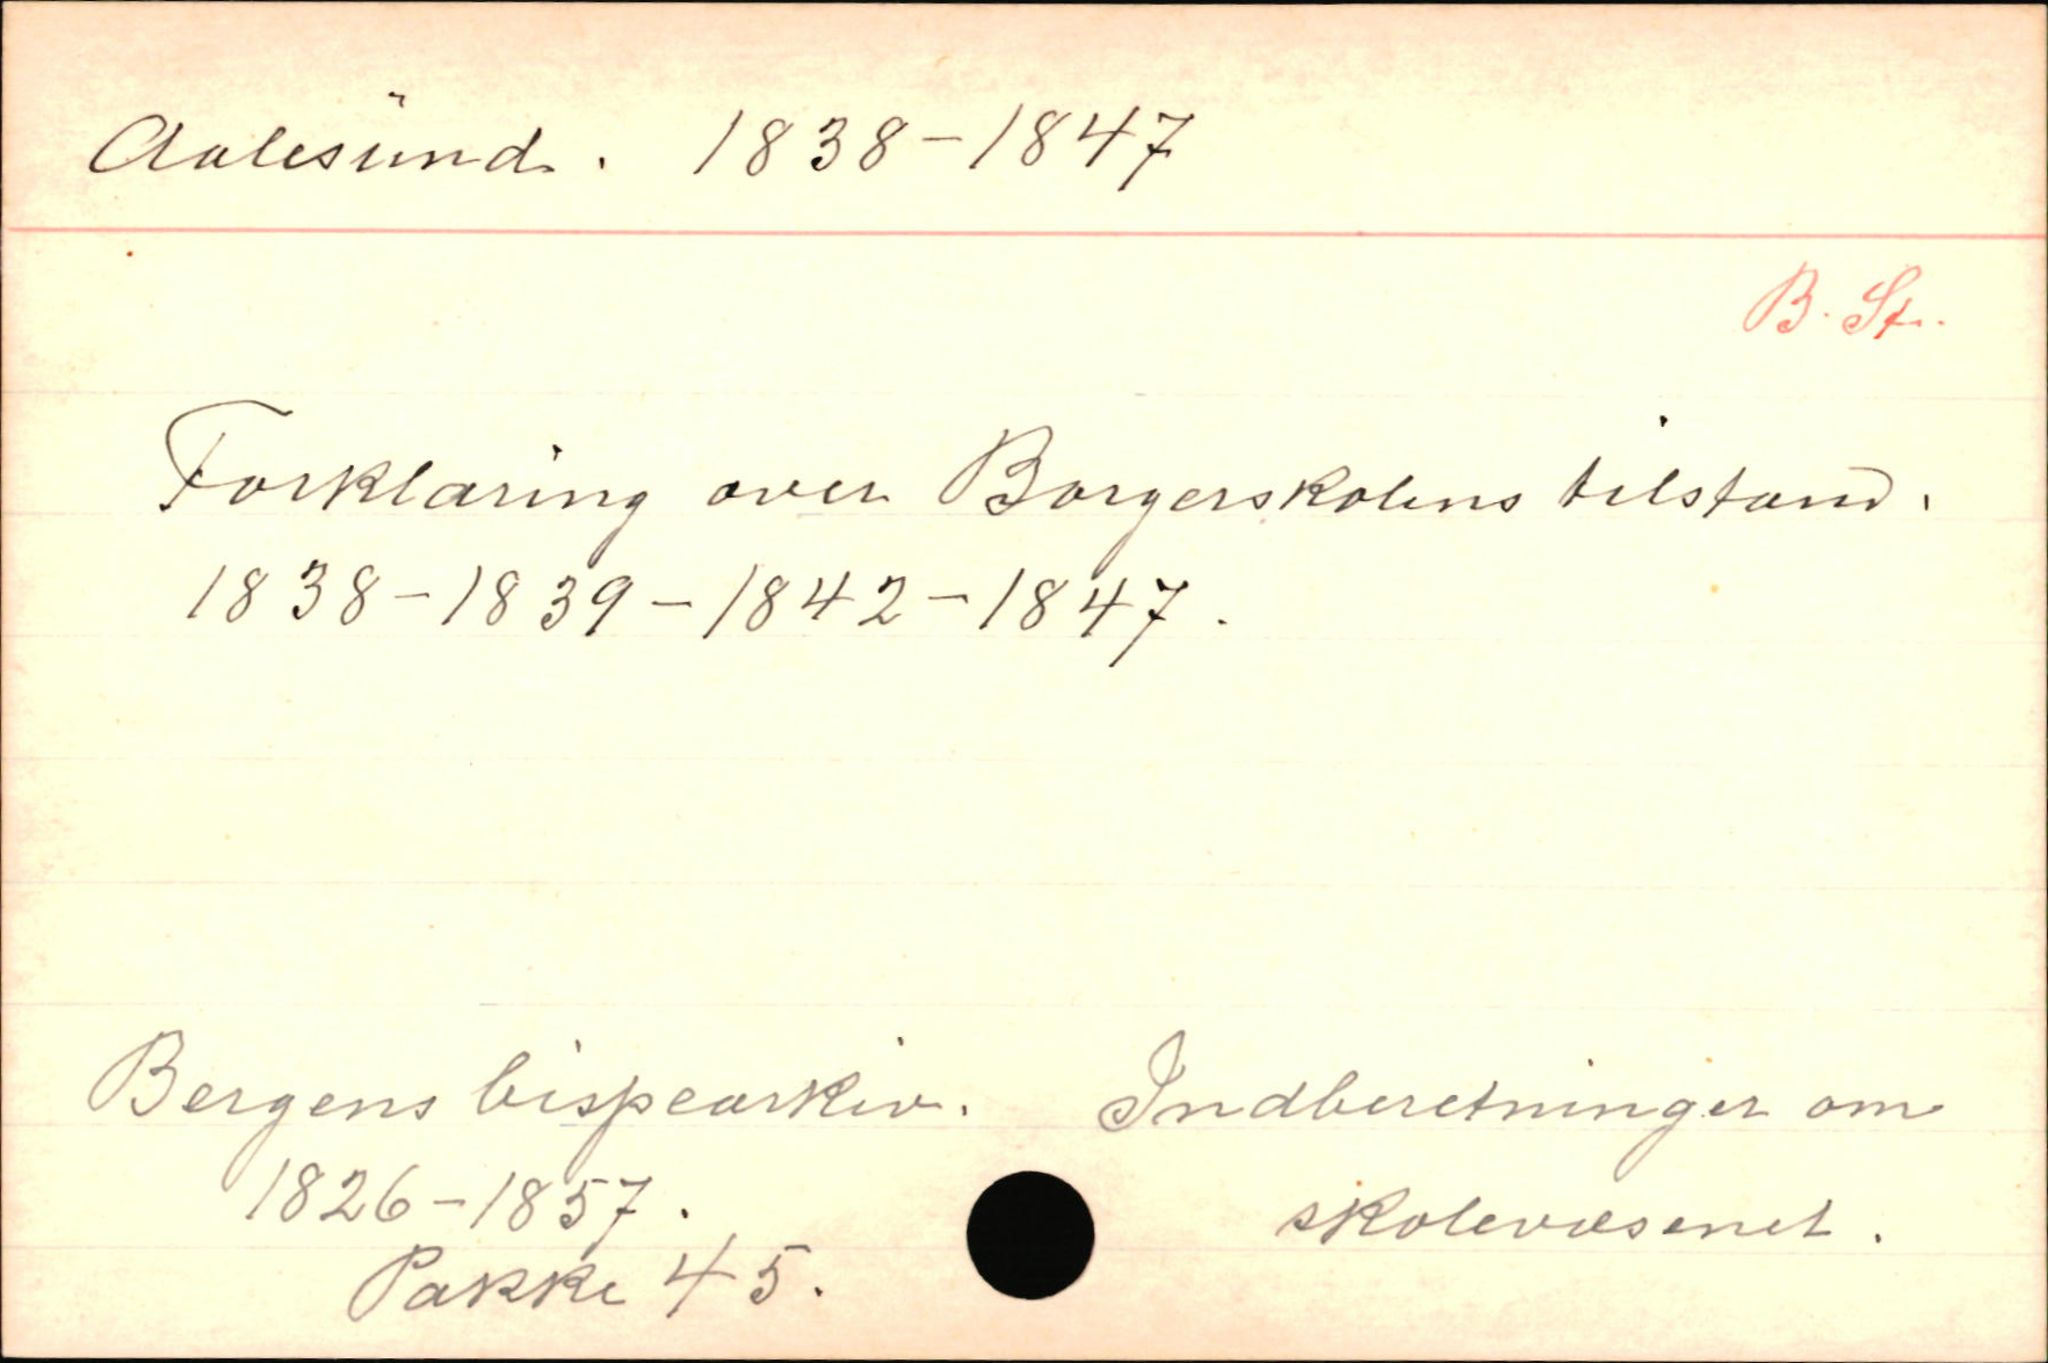 Aalesund. 1838-1847
B. St.
Forklaring over Borgerskolens tilstand.
1838-1839-1842-1847.
Bergens bispearkiv. Indberetninger om
1826-1857. skolevæsenet.
Pakke 45.